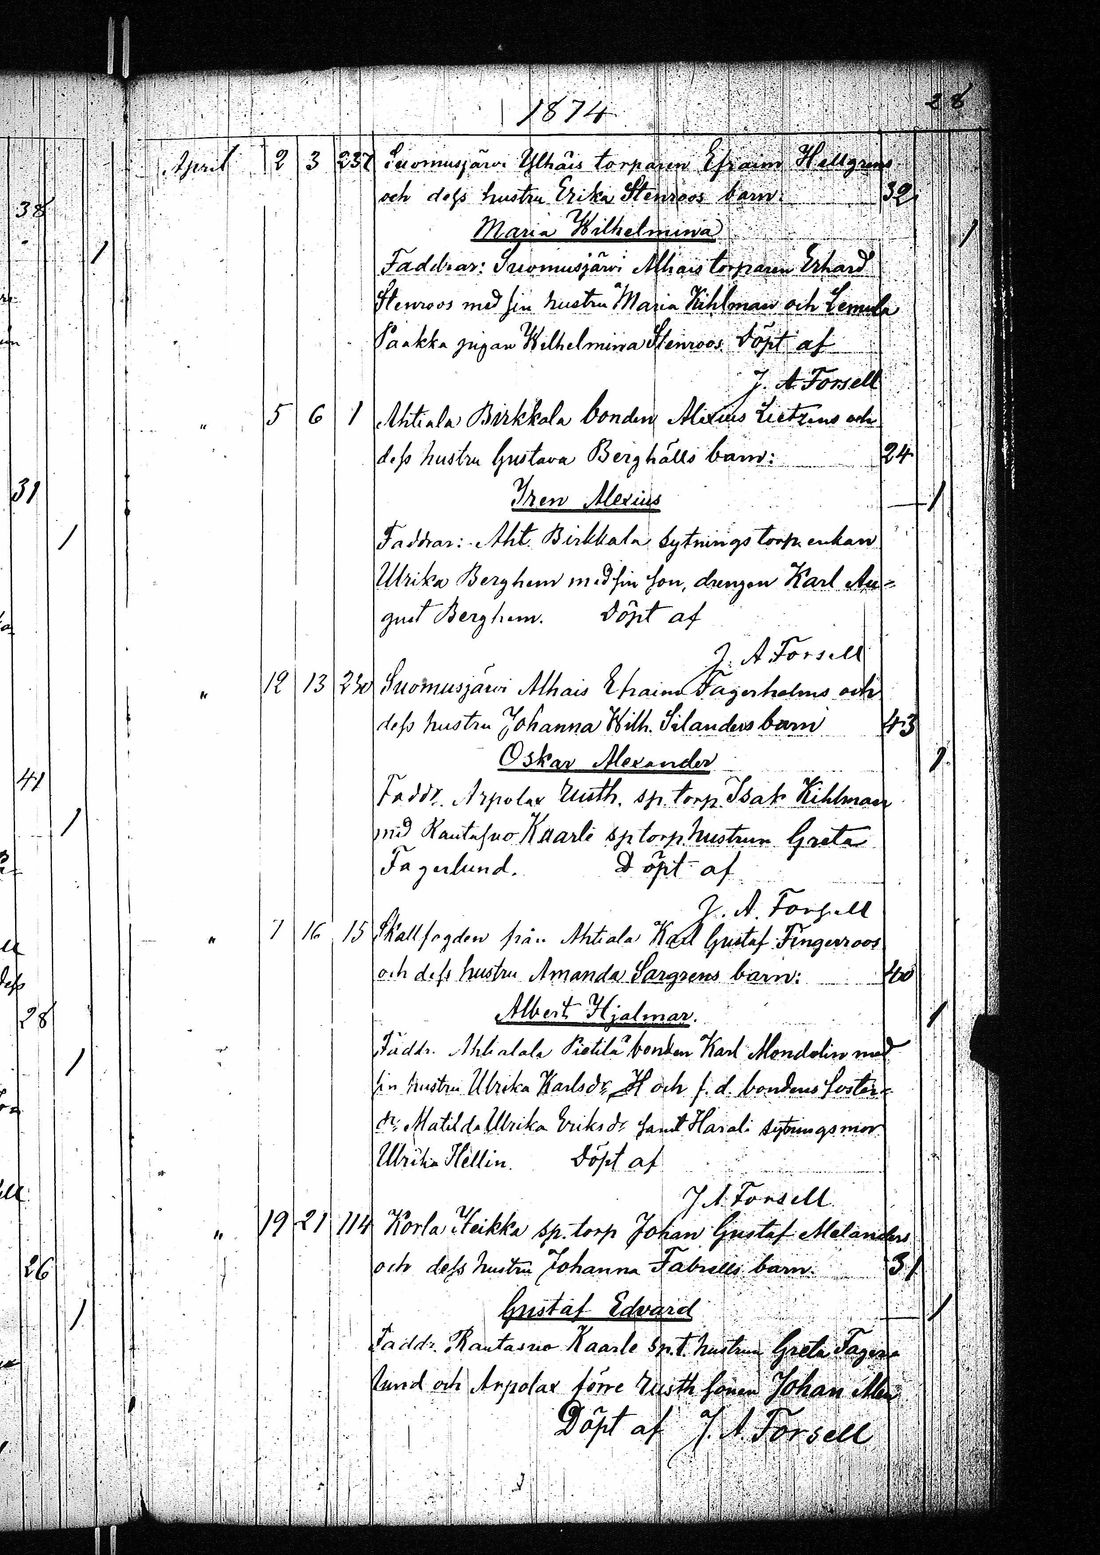 1874
28
April 2 3 237 Suomusjärvi Ylhäis torparen Efraim Hellgrens
och dess hustru Erika Stenroos barn: 32
Maria Wilhelmina 1
Faddrar: Suomusjärvi Alhais torparen Erhard
Stenroos med sin hustru Maria Kihlman och Lemula
Paakka pigan Wilhelmina Stenroos. Döpt af
J. A Forsell
" 5 6 1 Ahtiala Birkkala bonden Alexius Lietzens och
dess hustru Gustava Berghälls barn: 24
Iren Alexius 1
Faddrar: Aht. Birkkala sytnings torp. enkan
Ulrika Berghem med sin son, drengen Karl Au=
gust Berghem. Döpt af
J. A. Forsell
" 12 13 230 Suomusjärvi Alhais Efraim Fagerholms och
dess hustru Johanna Wilh. Silanders barn 43
Oskar Alexander 1
Faddr. Arpolax rusth. sp. torp. Isak Kihlman
med Rautasuo Kaarle sp torp hustrun Greta
Fagerlund. Döpt af
J. A. Forsell
" 7 16 15 Skallfogden från Ahtiala Karl Gustaf Fingerroos
och dess hustru Amanda Sargrens barn: 40
Albert Hjalmar. 1
Faddr. Ahtialala Pietilä bonden Karl Mondolin med
sin hustru Ulrika Karlsdr H och f. d. bondens foster=
dr. Matilda Ulrika Eriksdr samt Harali sytningsmor
Ulrika Hellin. Döpt af
J A Forsell
" 19 21 114 Korla Heikka sp. torp Johan Gustaf Melanders
och dess hustru Johanna Fabrells barn. 31
Gustaf Edvard 1
Faddr. Rautasuo Kaarle sp.t. hustrun Greta Fager=
lund och Arpolax förre rusth sonen Johan Alén
Döpt af J. A Forsell
38
1
31
1
41
1
28
1
26
1